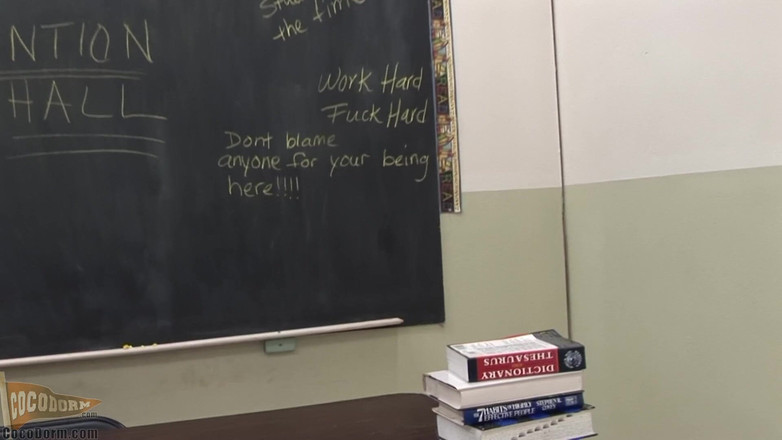 NTION
HALL
the time
Work Hard
Fuck Hard
Dont blame
anyone for your being
here!!!!
DICTIONARY
THESAURUS
THE 7 HABITS OF HIGHLY
EFFECTIVE PEOPLE
STEPHEN R.
COVEY
COCODORM
.com
CocoDorm.com